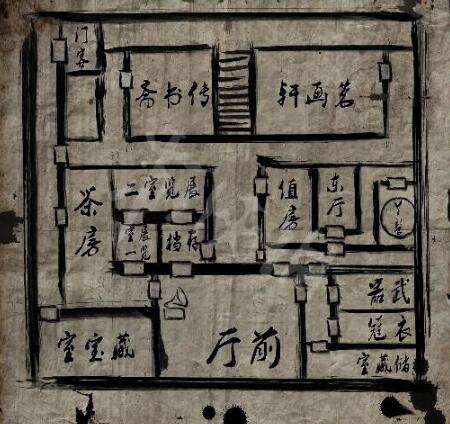 门客
传书斋
茗画轩
展览室二
茶房
值房
东厅
展览室一
存档
武器
衣冠
储藏室
藏宝室
前厅